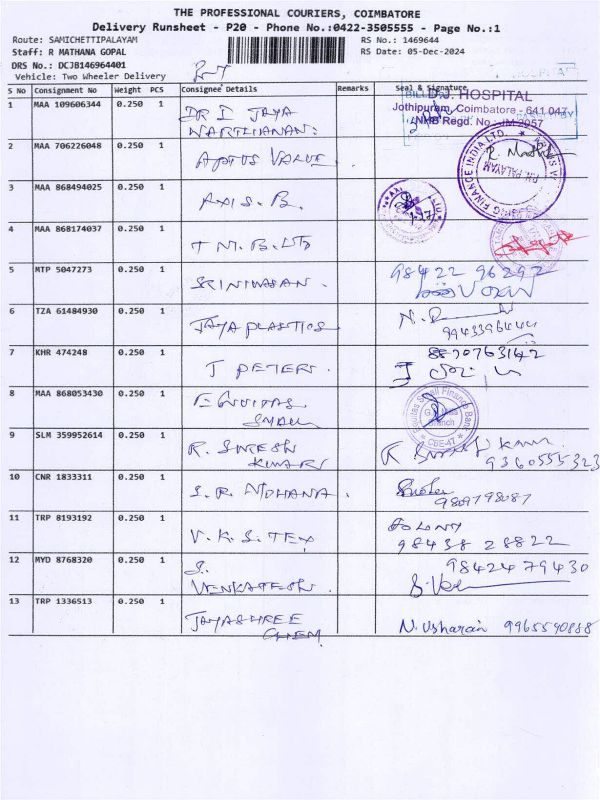 THE PROFESSIONAL COURIERS, COIMBATORE
Delivery Runsheet - P20 - Phone No.:0422-3505555 - Page No.:1
Route: SAMICHETTIPALAYAM RS No.: 1469644
Staff: R MATHANA GOPAL RS Date: 05-Dec-2024
DRS No.: DCJB146964401
Vehicle: Two Wheeler Delivery
S No Consignment No Weight PCS Consignee Details Remarks Seal & Signature
D.J. HOSPITAL
Jothipuram, Coimbatore - 641 047
NHB Regd. No.: JM 2057
1 MAA 109606344 0.250 1 DR I JAYA
2 MAA 706226048 0.250 1 APTUS VALUE
3 MAA 868494025 0.250 1 AXIS. B.
4 MAA 868174037 0.250 1 T M. B. LTD
5 MTP 5047273 0.250 1 SRINIVASAN. 98422 96292
6 TZA 61484930 0.250 1 JAYA PLASTICS
7 KHR 474248 0.250 1 J PETER. 8870763142
8 MAA 868053430 0.250 1 EQUITAS
Equitas Small Finance Bank
Branch
CBE-47
9 SLM 359952614 0.250 1 R. SURESH
KUMAR 9360555323
10 CNR 1833311 0.250 1 S. R.
9809798087
11 TRP 8193192 0.250 1 V. K. S. TEX
98438 28822
12 MYD 8768320 0.250 1 S. 9842479430
VENKATESH
13 TRP 1336513 0.250 1 JAYASHREE
CHEM N. Usharani 9965590888